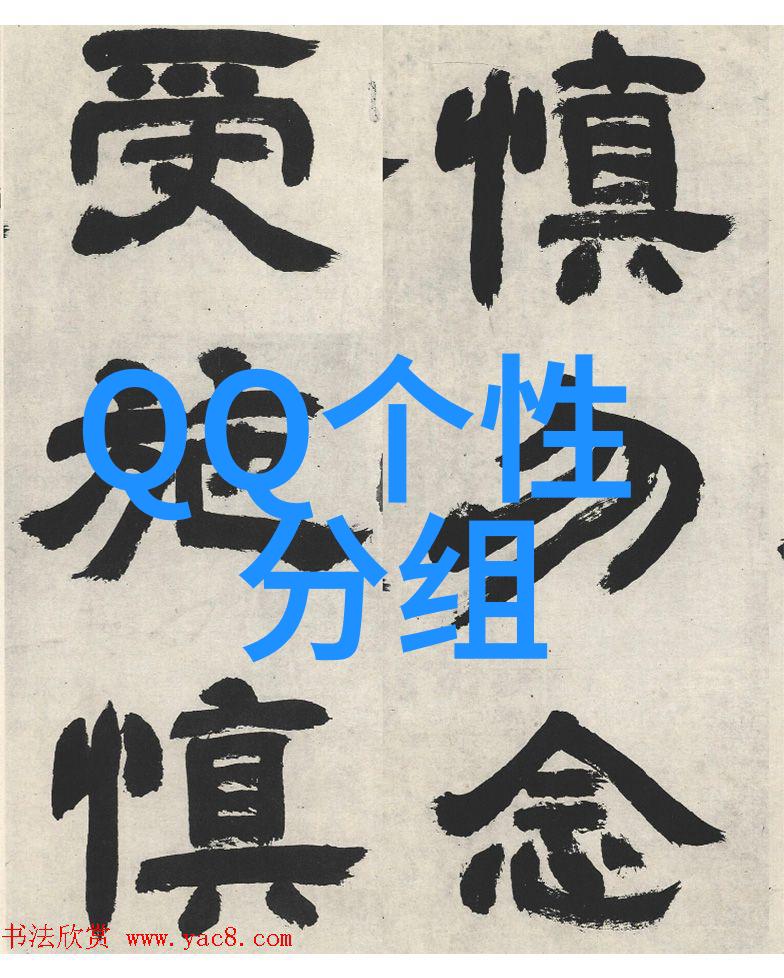 慎勿念
受施慎
QQ个性
分组
书法欣赏 www.yac8.com